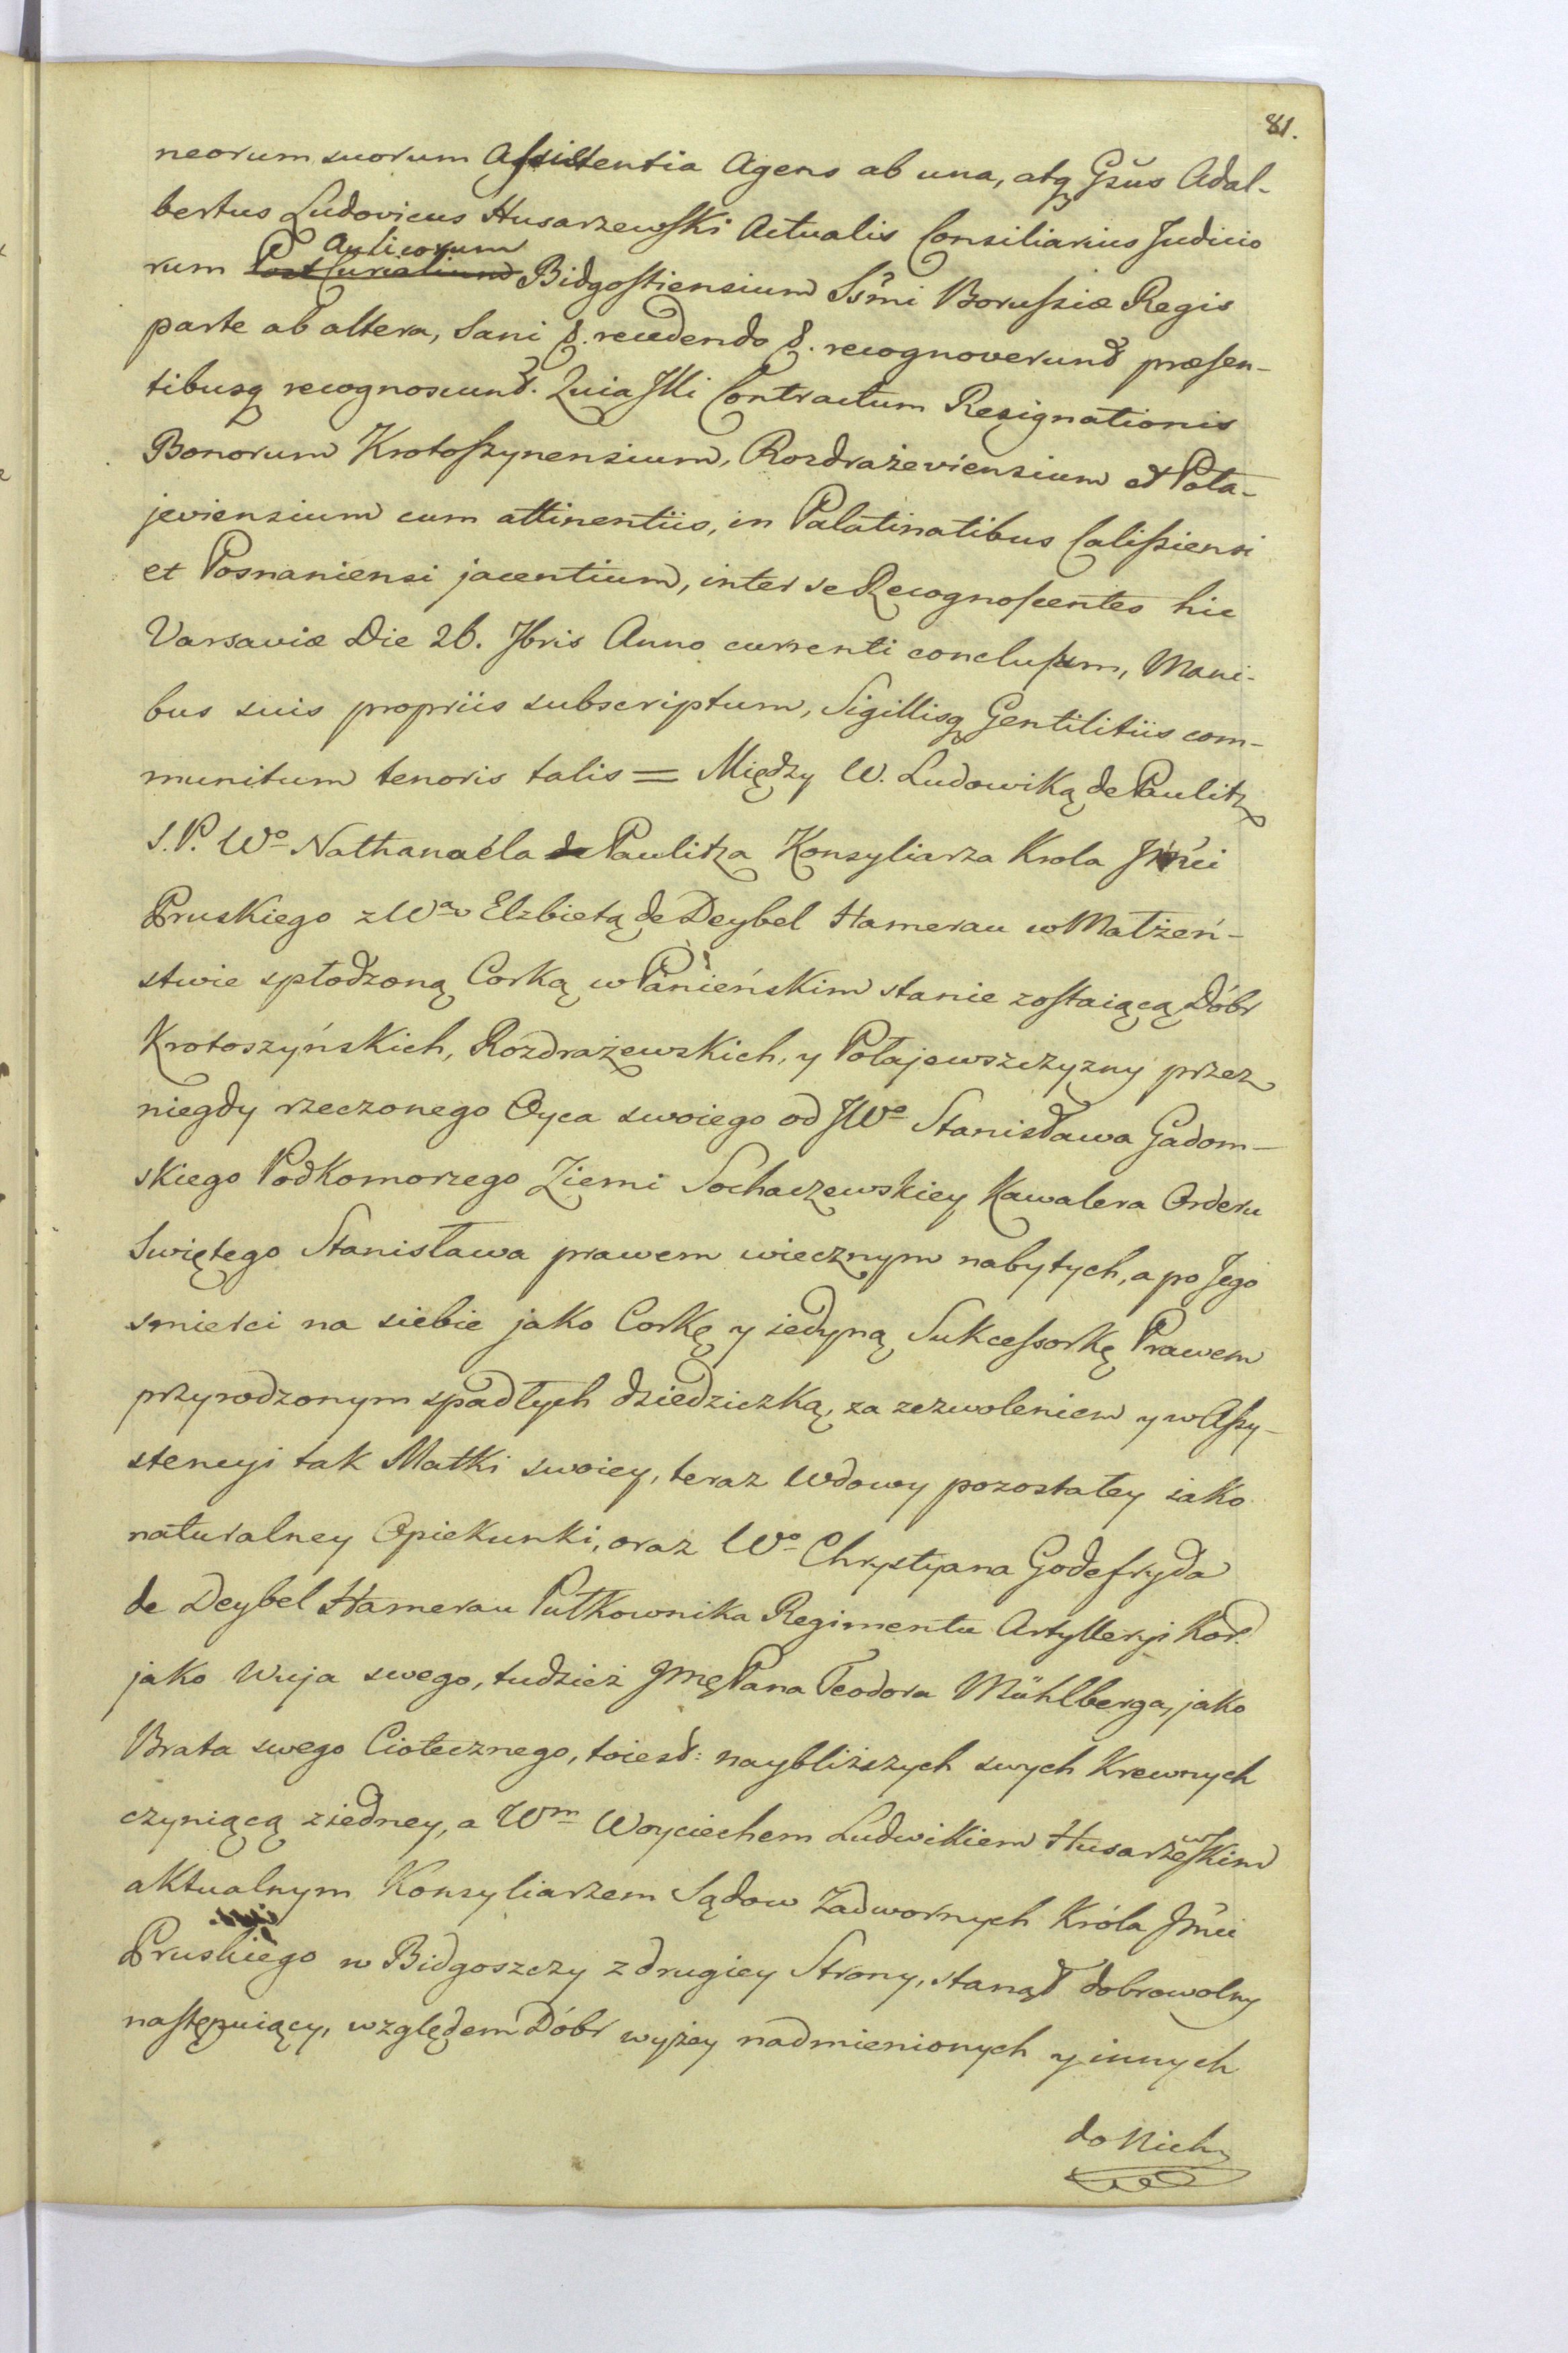 81.
neorum suorum Assistentia Agens ab una, atq Gsus Adal-
bertus Ludovicus Husarzewski Actualis Consiliarius Judicio
rum Aulicorum Bidgostiensium Ssmi Borussiæ Regis
parte ab altera, Sani &. recedendo &. recognoverunt præsen-
tibusq recognoscunt. Quia Illi Contractum Resignationis
Bonorum Krotoszynensium, Rozdrażeviensium et Pola-
jeviensium cum attinentiis, in Palatinatibus Calissiensi
et Posnaniensi jacentium, inter se Recognoscentes hic
Varsaviæ Die 26. 7bris Anno currenti conclusum, Mani-
bus suis propriis subscriptum, Sigillisq Gentilitiis com-
munitum tenoris talis = Między W. Ludowiką de Paulitz
S. P. Wo Nathanaéla de Paulitza Konsyliarza Krola Jmci
Pruskiego z Wą Elzbietą de Deybel Hamerau w Małżeń-
stwie spłodzoną Corką w Panieńskim stanie zostaiącą Dóbr
Krotoszyńskich, Rozdrażewskich, y Połajewszczyzny przez
niegdy rzeczonego Oyca swoiego od JWo Stanisława Gadom-
skiego Podkomorzego Ziemi Sochaczewskiey Kawalera Orderu
Swiętego Stanisława prawem wiecznym nabytych, a po Jego
smierci na siebie jako Corkę y iedyną Sukcessorkę Prawem
przyrodzonym spadłych dziedziczką, za zezwoleniem y w Assy-
stencyi tak Matki swoiey, teraz Wdowy pozostałey iako
naturalney Opiekunki, oraz Wo Chrystyana Godefryda
de Deybel Hamerau Pułkownika Regimentu Artylleryi Kor.
jako Wuja swego, tudzież Jmę Pana Teodora Mühlberga, jako
Brata swego Ciotecznego, toiest: naybliższych swych Krewnych
czyniącą ziedney, a Wm Woyciechem Ludwikiem Husarzewskim
aktualnym Konsyliarzem Sądow Zadwornych Króla Jmci
Pruskiego w Bidgoszczy z drugiey Strony, stanął dobrowolny
następuiący, względem Dóbr wyżey nadmienionych y innych
do Nich